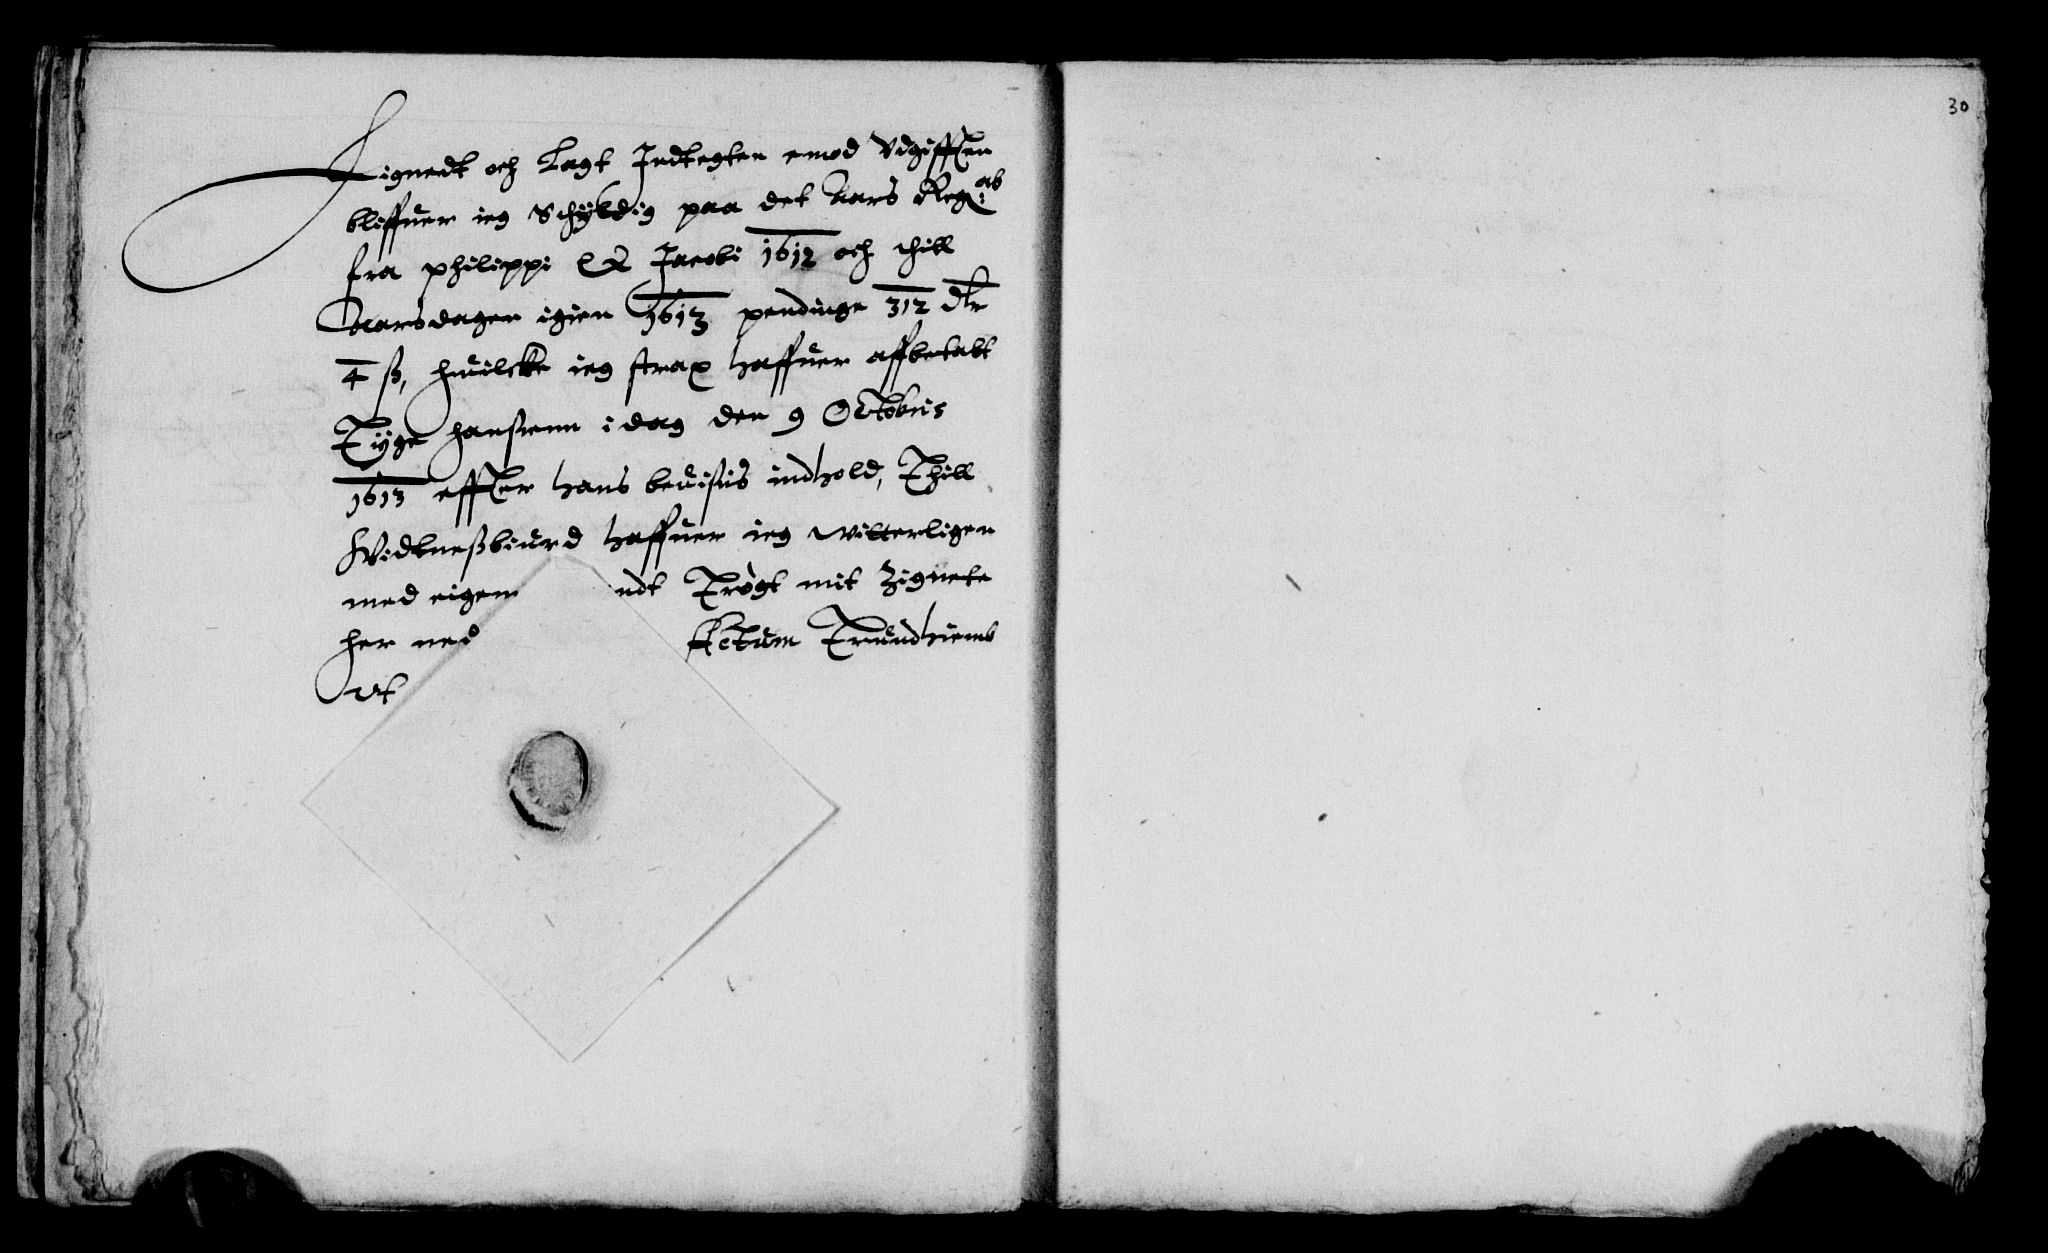 Lignedt och Lagt Indtegten emod Vdgifften
bliffuer ieg Schÿldig paa det Aars Regs:ab
fra philippi & Jacobi 1612 och thill
Aarsdagen igien 1613 pendinge 312 dlr
4 ß, huilcke ieg strax haffuer affbetalt
Tÿge hanßenn i dag den 9 Octobris
1613 effter hans beuisis indhold, Thill
Widtneßbiurd haffuer ieg witterligen
med eigen ndt Trøgt mit Zignete
her ned Actum Trundhiems
Vt
30